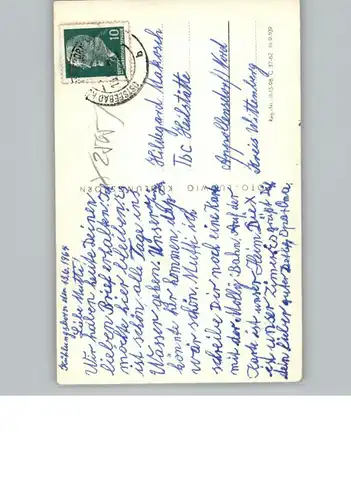 Kühlungsborn den 13.6.1964
Liebe Mutti!
Wir haben heute Deinen
lieben Brief erhalten. Ich
möchte hier bleiben, es
ist schön, alle Tage ins
Wasser gehen. Unser
könnte hier kommen, das
wär schön. Mutti ich
schreibe Dir noch eine Karte
mit der Molli Bahn. Auf der
Karte ist unser Heim. Das X
ist unser Zimmer. Es grüßt Dich
Dein lieber guter
Hildegard Makosch
Tbc Heilstätte
Kreis Wittenberg
FOTO-LUDWIG KÜHLUNGSBORN
10